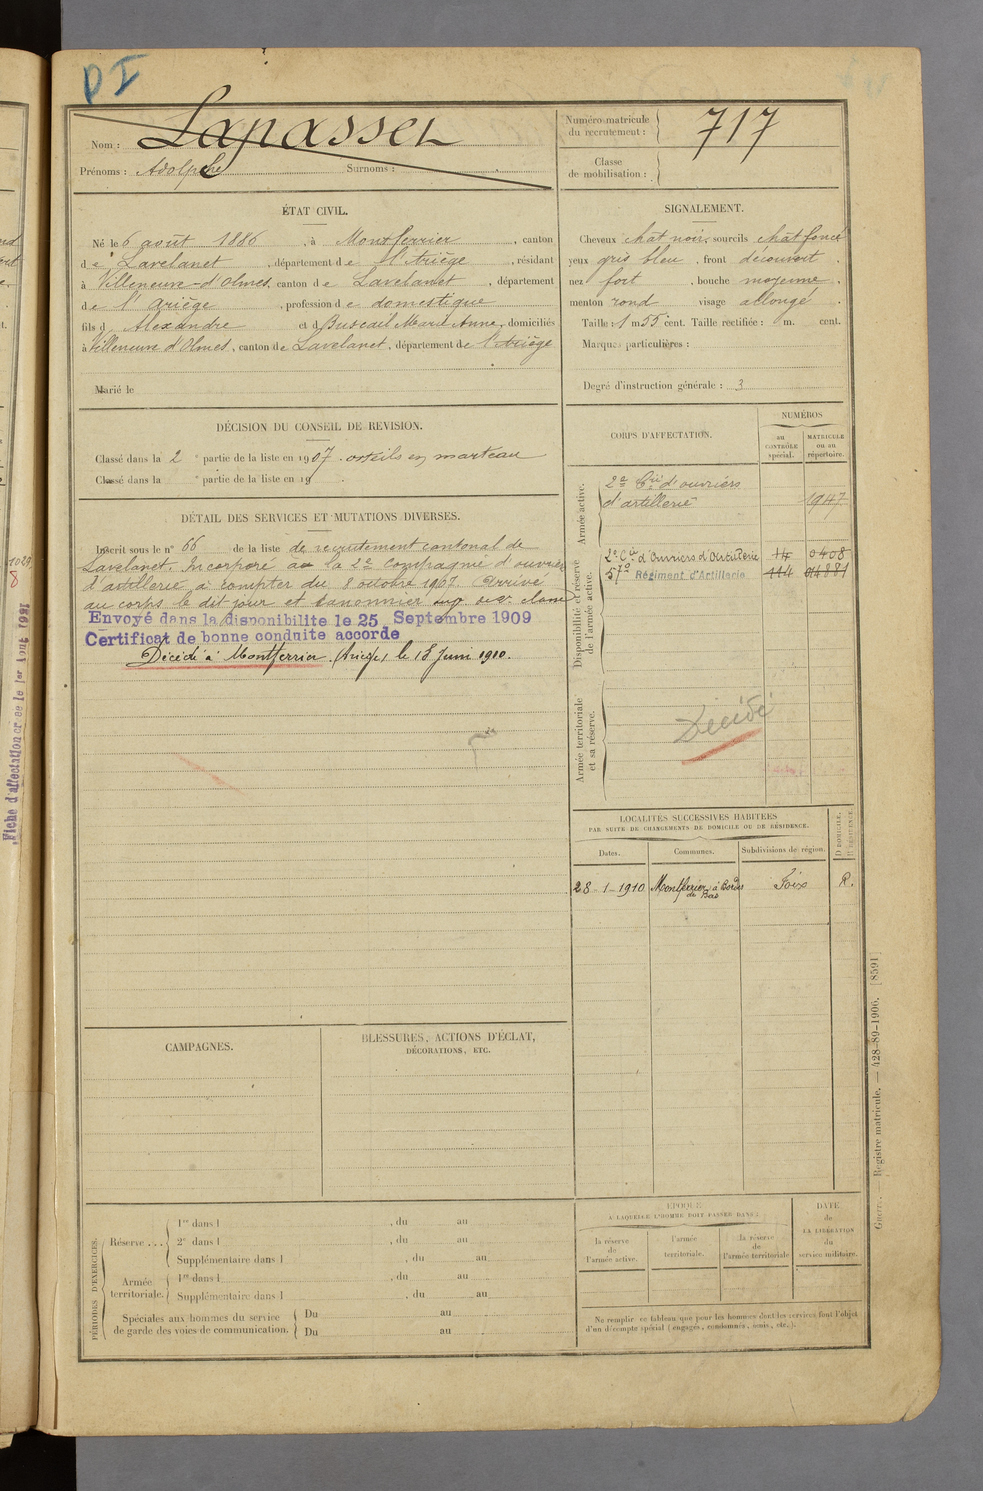 D I
Nom : Lapasset
Prénoms : Adolphe Surnoms :
Numéro matricule du recrutement : 717
Classe de mobilisation :
ÉTAT CIVIL.
Né le 6 août 1886, à Montferrier, canton
de Lavelanet, département de l'Ariège, résidant
à Villeneuve-d'Olmes, canton de Lavelanet, département
de l'Ariège, profession de domestique
fils d Alexandre et d Buscail Marie Anne, domiciliés
à Villeneuve d'Olmes, canton de Lavelanet, département de l'Ariège
Marié le
SIGNALEMENT.
Cheveux chat noir, sourcils chat foncé
yeux gris bleu, front découvert,
nez fort, bouche moyenne,
menton rond visage allongé.
Taille : 1 m 55 cent. Taille rectifiée : m. cent.
Marques particulières :
Degré d'instruction générale : 3
DÉCISION DU CONSEIL DE REVISION.
Classé dans la 2 e partie de la liste en 1907. orteils en marteau
Classé dans la e partie de la liste en 19 .
DÉTAIL DES SERVICES ET MUTATIONS DIVERSES.
Inscrit sous le n° 66 de la liste de recrutement cantonal de
Lavelanet. Incorporé à la 2e compagnie d'ouvriers
d'artillerie à compter du 8 octobre 1907. Arrivé
au corps le dit jour et canonnier classe
Envoyé dans la disponibilite le 25 Septembre 1909
Certificat de bonne conduite accorde
Décédé à Montferrier (Ariège) le 18 Juin 1910.
CORPS D'AFFECTATION.
NUMÉROS
au CONTRÔLE spécial.
MATRICULE ou au répertoire.
Armée active.
2e Cie d'ouvriers
d'artillerie 1947
Disponibilité et réserve de l'armée active.
2e Cie d'Ouvriers d'Artillerie 14 0408
57e Régiment d'Artillerie 114 04881
Armée territoriale et sa réserve.
Décédé
LOCALITÉS SUCCESSIVES HABITÉES
PAR SUITE DE CHANGEMENTS DE DOMICILE OU DE RÉSIDENCE.
Dates. Communes. Subdivisions de région. D DOMICILE, R RÉSIDENCE.
28-1-1910 Montferrier à Bordes de Bas Foix R.
CAMPAGNES.
BLESSURES, ACTIONS D'ÉCLAT,
DÉCORATIONS, ETC.
PÉRIODES D'EXERCICES.
Réserve ...
1re dans l , du au
2e dans l , du au
Supplémentaire dans l , du au
Armée territoriale.
1re dans l , du au
Supplémentaire dans l , du au
Spéciales aux hommes du service de garde des voies de communication.
Du au
Du au
ÉPOQUE
À LAQUELLE L'HOMME DOIT PASSER DANS :
la réserve de l'armée active.
l'armée territoriale.
la réserve de l'armée territoriale
DATE de LA LIBÉRATION du service militaire.
Ne remplir ce tableau que pour les hommes dont les services font l'objet
d'un décompte spécial (engagés, condamnés, omis, etc.).
Guerre. — Registre matricule. — 428-89-1906. [8591]
1029
8
Fiche d'affectation créée le 1er Août 1921